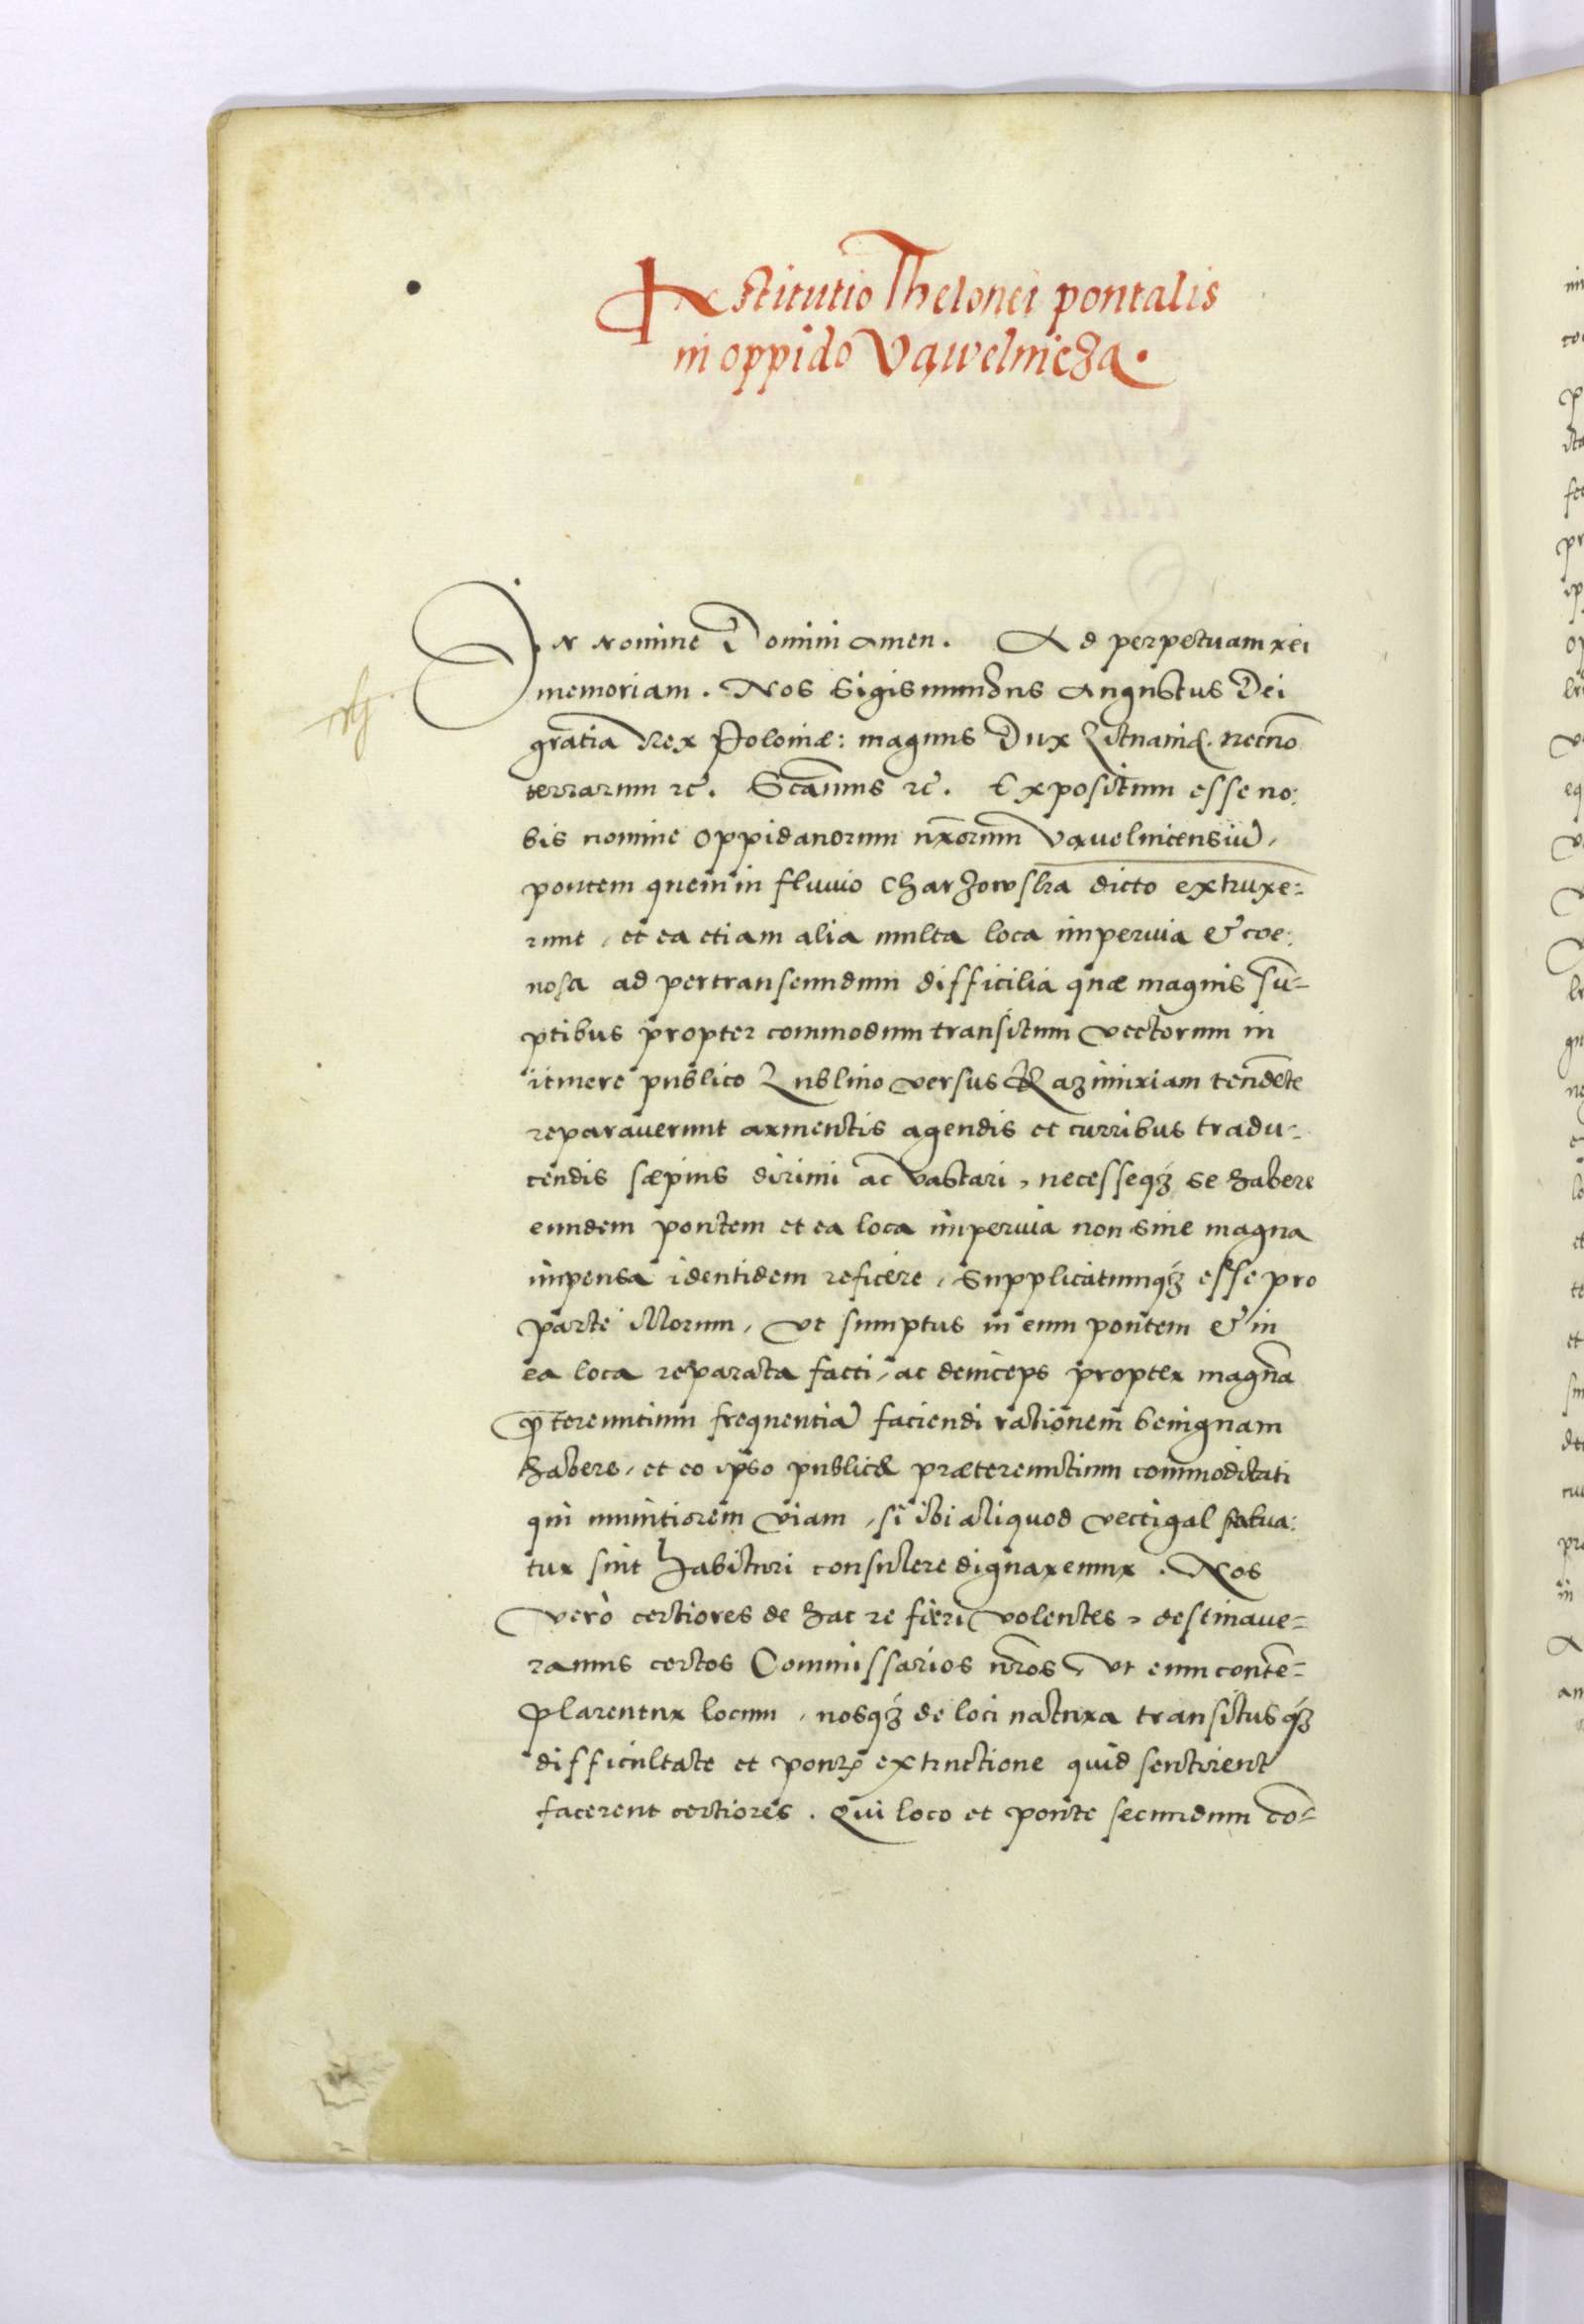 Restitutio Thelonei pontalis
in oppido Vąwelnicza.
In nomine Domini amen. Ad perpetuam rei
memoriam. Nos Sigismundus Augustus Dei
gratia Rex Poloniæ: magnus Dux Lituaniæ. necnō
terrarum rc̄. Scām̄us rc̄. Expositum esse no:
bis nomine oppidanorum nr̄orum Vąuelnicensiū,
pontem quem in fluuio Charzowska dicto extruxe=
runt, et ea etiam alia multa loca imperuia & coe:
nosa ad pertranseundum difficilia quæ magnis sū=
ptibus propter commodum transitum vectorum in
itinere publico Lublino versus Kazimiriam tendēte
reparauerunt armentis agendis et curribus tradu=
cendis sæpius dirimi ac vastari, necesseqꝫ se habere
eundem pontem et ea loca imperuia non sine magna
impensa identidem reficere, supplicatumqꝫ esse pro
parte illorum, vt sumptus in eum pontem & in
ea loca reparata facti, ac deinceps propter magnā
p̄tereuntium frequentiā faciendi rationem benignam
habere, et eo ipso publicæ prætereuntium commoditati
qui munitiorem viam, si ibi aliquod vectigal statua:
tur sint habituri consulere dignaremur. Nos
verò certiores de hac re fieri volentes, destinaue=
ramus certos Commissarios nr̄os, vt eum conte=
plarentur locum, nosqꝫ de loci natura transitusqꝫ
difficultate et pontis extructione quid sentirent
facerent certiores. Qui loco et ponte secundum cō=